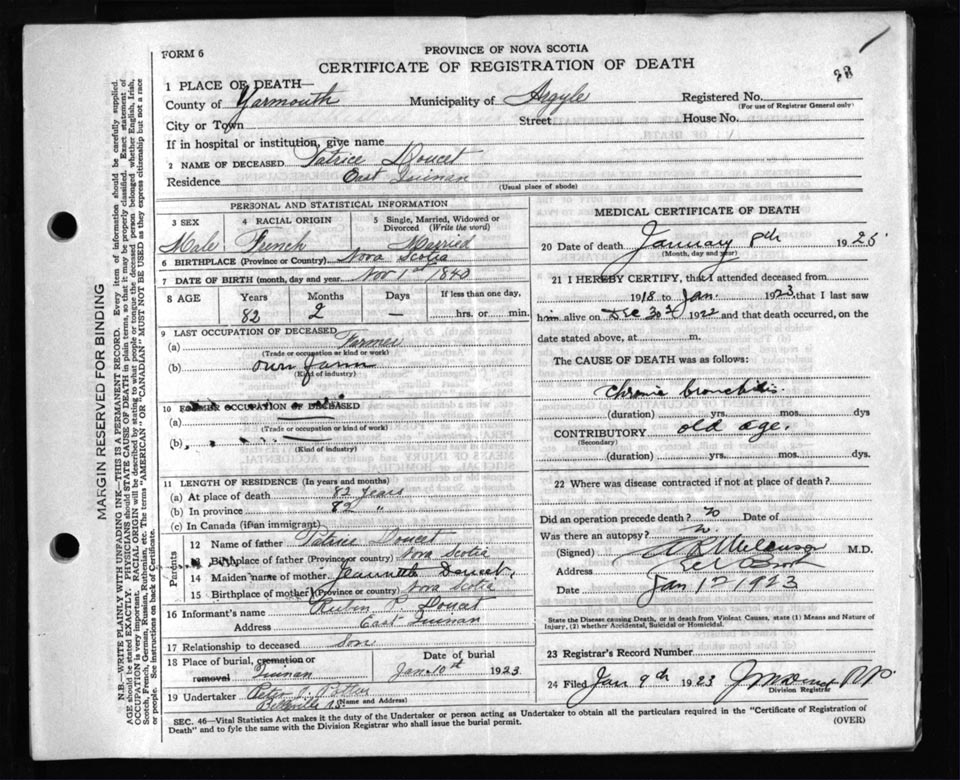 FORM 6
PROVINCE OF NOVA SCOTIA
CERTIFICATE OF REGISTRATION OF DEATH
23
1 PLACE OF DEATH—
County of Yarmouth Municipality of Argyle Registered No.
(For use of Registrar General only)
City or Town Street House No.
If in hospital or institution, give name
2 NAME OF DECEASED Patrice Doucet
Residence East Quinan
(Usual place of abode)
PERSONAL AND STATISTICAL INFORMATION
3 SEX 4 RACIAL ORIGIN 5 Single, Married, Widowed or
Divorced (Write the word)
Male French Married
6 BIRTHPLACE (Province or Country) Nova Scotia
7 DATE OF BIRTH (month, day and year) Nov 1st 1840
8 AGE Years Months Days If less than one day,
82 2 — hrs. or min.
9 LAST OCCUPATION OF DECEASED
(a) Farmer
(Trade or occupation as kind or work)
(b) own farm
(Kind of industry)
10 FORMER OCCUPATION OF DECEASED
(a)
(Trade or occupation as kind or work)
(b)
(Kind of industry)
11 LENGTH OF RESIDENCE (In years and months)
(a) At place of death 82 years
(b) In province 82 "
(c) In Canada (if an immigrant)
Parents
12 Name of father Patrice Doucet
13 Birthplace of father (Province or country) Nova Scotia
14 Maiden name of mother Jeannette Doucet
15 Birthplace of mother (Province or country) Nova Scotia
16 Informant's name Rubin P. Doucet
Address East Quinan
17 Relationship to deceased Son
18 Place of burial, cremation or removal Quinan
Date of burial Jan 10th 1923
19 Undertaker Peter
Belleville N.S.
(Name and Address)
MEDICAL CERTIFICATE OF DEATH
20 Date of death January 8th 1923
(Month, day and year)
21 I HEREBY CERTIFY, that I attended deceased from
1918 to Jan. 1923 that I last saw
him alive on Dec 30th 1922 and that death occurred, on
date stated above, at m.
The CAUSE OF DEATH was as follows:
Chronic bronchitis
(duration) yrs. mos. dys
CONTRIBUTORY old age.
(Secondary)
(duration) yrs. mos. dys.
22 Where was disease contracted if not at place of death?
Did an operation precede death? no Date of
Was there an autopsy? no
(Signed) M.D.
Address Eel Brook
Date Jan 12 1923
State the Disease causing Death, or in death from Violent Causes, state (1) Means and Nature of
Injury, (2) whether Accidental, Suicidal or Homicidal.
23 Registrar's Record Number
24 Filed Jan 9th 1923
Division Registrar
SEC. 46—Vital Statistics Act makes it the duty of the Undertaker or person acting as Undertaker to obtain all the particulars required in the "Certificate of Registration of
Death" and to fyle the same with the Division Registrar who shall issue the burial permit. (OVER)
MARGIN RESERVED FOR BINDING
N.B.—WRITE PLAINLY WITH UNFADING INK—THIS IS A PERMANENT RECORD. Every item of information should be carefully supplied.
AGE should be stated EXACTLY. PHYSICIANS should STATE CAUSE OF DEATH in plain terms, so that it may be properly classified. Exact statement of
OCCUPATION is very important. RACIAL ORIGIN will be described by stating to what people or tongue the deceased person belonged whether English, Irish,
Scotch, French, German, Russian, Ruthenian, etc. The terms "AMERICAN" or "CANADIAN" MUST NOT BE USED as they express citizenship but not a race
or people. See instructions on back of Certificate.